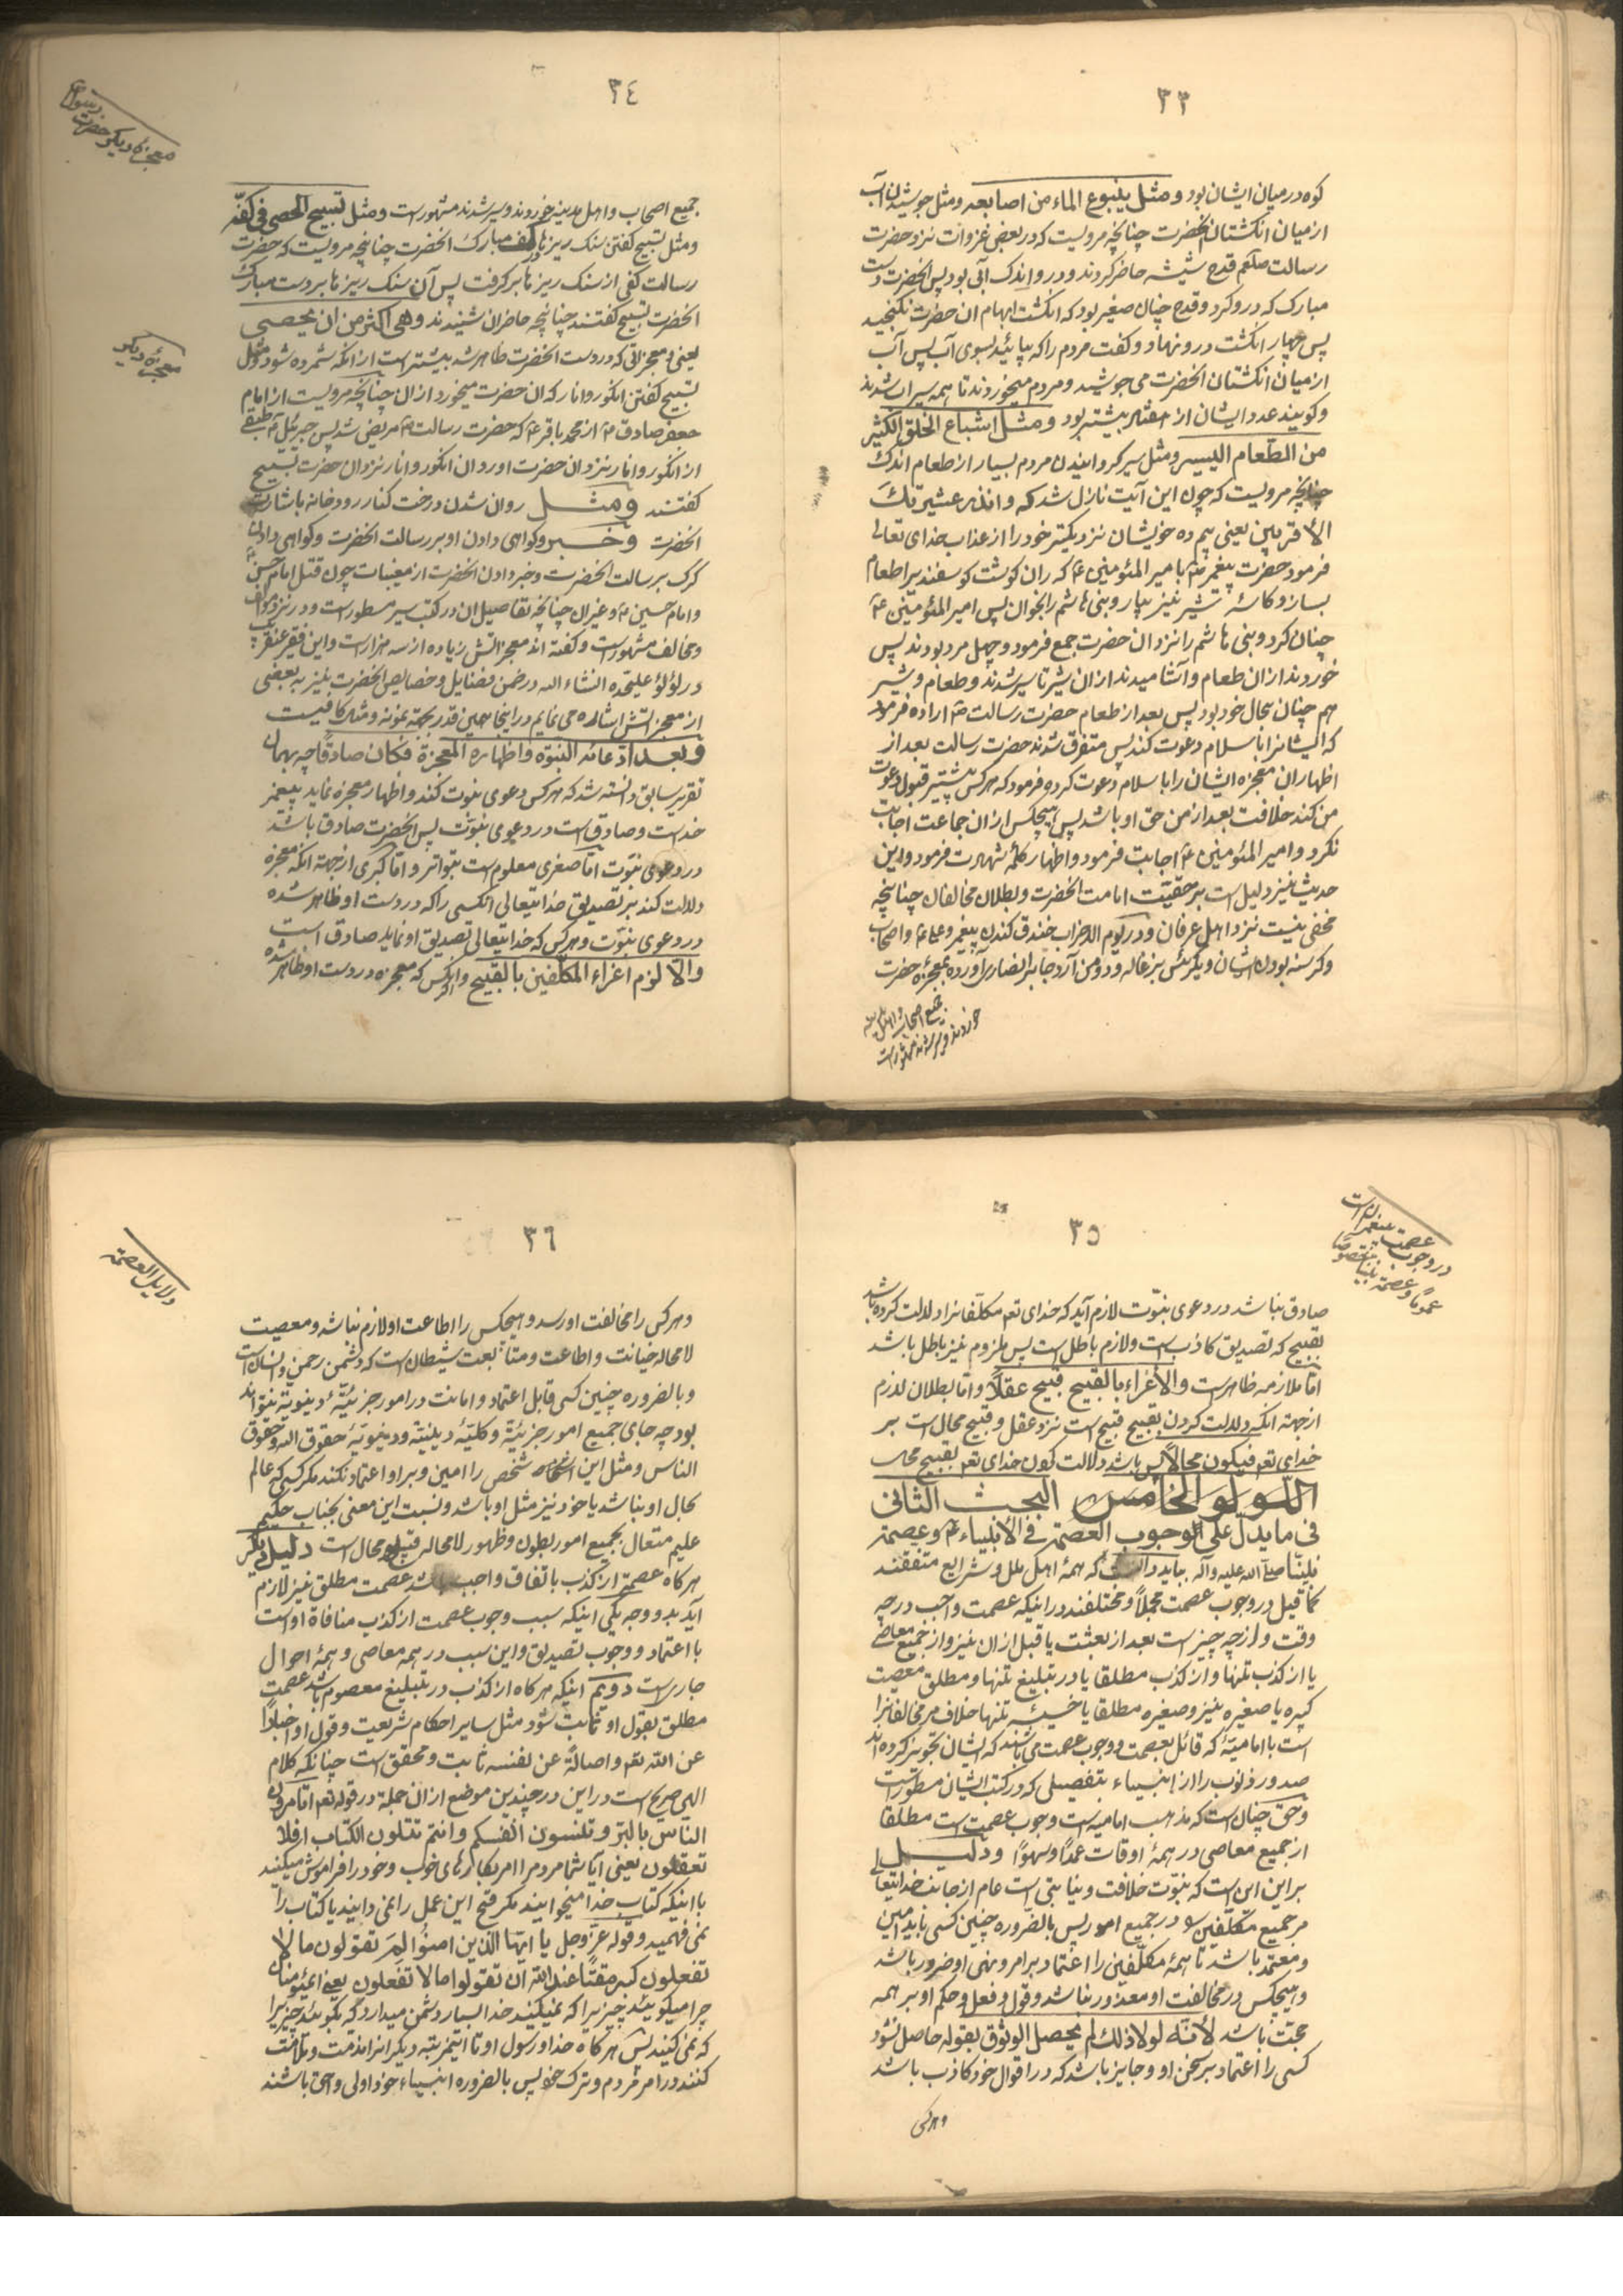 ٣٣
کوه در میان ایشان بود و مثل ینبوع الماء من اصابعه و مثل جوشیدن آب
از میان انکشتان انحضرت چنانچه مرویست که در بعضی غزوات نزد حضرت
رسالت صلعم قدح شیشه حاضر کردند و در و اندک آبی بود پس انحضرت دست
مبارک که در و کرد و قدح چنان صغیر بود که انکشت ابهام ان حضرت نکنجید
پس چهار انکشت در و نهاد و کفت مردم را که بیائید بسوی آب پس آب
از میان انکشتان انحضرت می جوشید و مردم میخوردند تا همه سیراب شدند
و کویند عدد ایشان از هفتاد بیشتر بود و مثل اشباع الخلق الکثیر
من الطعام الیسیر و مثل سیر کردانیدن مردم بسیار از طعام اندک
چنانچه مرویست که چون این آیت نازل شد که و انذر عشیرتک
الأقربین یعنی بیم ده خویشان نزدیکتر خود را از عذاب خدای تعالی
فرمود حضرت پیغمبر ص بامیر المئومنین ع که ران کوشت کوسفند برا طعام
بساز و کاسهٔ شیر نیز بیار و بنی هاشم را بخوان پس امیر المئومنین ع
چنان کرد و بنی هاشم را نزد ان حضرت جمع فرمود و چهل مرد بودند پس
خوردند از ان طعام و آشامیدند از ان شیر تا سیر شدند و طعام و شیر
هم چنان بحال خود بود پس بعد از طعام حضرت رسالت ص اراده فرمود
که ایشانرا باسلام دعوت کند پس متفرق شدند حضرت رسالت بعد از
اظهار ان معجزه ایشان را باسلام دعوت کرد و فرمود که هر کس پیشتر قبول دعوت
من کند خلافت بعد از من حق او باشد پس هیچکس از ان جماعت اجابت
نکرد و امیر المئومنین ع اجابت فرمود و اظهار کلمهٔ شهادت فرمود و این
حدیث نیز دلیل است بر حقیّت امامت انحضرت و بطلان مخالفان چنانچه
مخفی نیست نزد اهل عرفان و در یوم الاحزاب خندق کندن پیغمبر و علی ع و اصحاب
و کرسنه بودن ایشان و یکرئس بزغاله و دو من آرد جابر انصاری آورده بمعجزهٔ حضرت
جمیع اصحاب و اهل مدینه
خوردند و سیر شدند مشهور است
٣٤
معجزهٔ دیکر حضرت رسول ص
جمیع اصحاب و اهل مدینه خوردند و سیر شدند مشهور است و مثل تسبیح الحصی فی کفّه
و مثل تسبیح کفتن سنک ریزها در کف مبارک انحضرت چنانچه مرویست که حضرت
رسالت کفی از سنک ریزها بر کرفت پس آن سنک ریزها بر دست مبارک
انحضرت تسبیح کفتند چنانچه حاضران شنیدند و هی اکثر من ان یحصی
معجزهٔ دیکر
یعنی و معجزاتی که در دست انحضرت ظاهر شد بیشتر است از انکه شمرده شود و مثل
تسبیح کفتن انکور و انار که ان حضرت میخورد از ان چنانچه مرویست از امام
جعفر صادق ع از محمد باقر ع که حضرت رسالت ص مریض شد پس جبرئیل ع طبقی
از انکور و انار نزد ان حضرت اورد و ان انکور و انار نزد ان حضرت تسبیح
کفتند و مثل روان شدن درخت کنار رودخانه باشارت
انحضرت و خبر و کواهی دادن او بر رسالت انحضرت و کواهی دادن
کرک بر رسالت انحضرت و خبر دادن انحضرت از مغیبات چون قتل امام حسن ع
و امام حسین ع و غیران چنانچه تفاصیل ان در کتب سیر مسطور است و در نزد موالف
و مخالف مشهور است و کفته اند معجزاتش زیاده از سه هزار است و این فقیر عنقریب
در لؤلؤ علیحده انشاء الله در ضمن فضایل و خصایص انحضرت نیز به بعضی
از معجزاتش اشاره می نمایم در اینجا همین قدر بجهة نمونه و مثل کافیست
و بعد ادعائه النبوّه و اظهاره المعجزة فکان صادقًا چه بهمان
تقریر سابق دانسته شد که هر کس دعوی نبوت کند و اظهار معجزه نماید پیغمبر
خداست و صادق است در دعوی نبوّت پس انحضرت صادق باشد
در دعوی نبوّت امّا صغری معلوم است بتواتر و امّا کبری از جهة انکه معجزه
دلالت کند بر تصدیق خدایتعالی انکسی را که در دست او ظاهر شده
در دعوی نبوّت و هر کس که خدایتعالی تصدیق او نماید صادق است
و الّا لزم اغراء المکلّفین بالقبیح و اکر انکس که معجزه در دست او ظاهر شده
٣٥
در وجوب عصمت پیغمبران است
عمومًا و عصمة نبیّنا خصوصًا
صادق نباشد در دعوی نبوّت لازم آید که خدای تعم مکلّفانرا دلالت کرده باشد
بقبیح که تصدیق کاذب است و لازم باطل است پس ملزوم نیز باطل باشد
امّا ملازمه ظاهر است و الأغراء بالقبیح قبیح عقلاً و امّا بطلان لازم
از جهة انکه دلالت کردن بقبیح قبیح است نزد عقل و قبیح محال است بر
خدای تعم فیکون محالاً پس باشد دلالت کردن خدای تعم بقبیح محال
اللولو الخامس البحث الثانی
فی ما یدلّ علی الوجوب العصمة فی الأنبیاء ع و عصمة
نبیّنا صلی الله علیه و آله بباید دانست که همهٔ اهل ملل و شرایع متفقند
کما قیل در وجوب عصمت مجملاً و مختلفند در اینکه عصمت واجب در چه
وقت و از چه چیز است بعد از بعثت یا قبل از ان نیز و از جمیع معاصی
یا از کذب تنها و از کذب مطلقا یا در تبلیغ تنها و مطلق معصیت
کبیره یا صغیره نیز و صغیره مطلقا یا خسیسه تنها خلاف مر مخالفانرا
است با امامیّهٔ که قائل بعصمت و وجوب عصمت می باشند که ایشان تجویز کرده اند
صدور ذنوب را از انبیاء بتفصیلی که در کتب ایشان مسطور است
و حق چنان است که مذهب امامیه است وجوب عصمت است مطلقا
از جمیع معاصی در همهٔ اوقات عمداً و سهوًا و دلیل
بر این این است که نبوّت خلافت و نیابتی است عام از جانب خدایتعالی
مر جمیع مکلّفین را در جمیع امور پس بالضروره چنین کسی باید امین
و معتمد باشد تا همهٔ مکلّفین را اعتماد بر امر و نهی او ضرور باشد
و هیچکس در مخالفت او معذور نباشد و قول و فعل و حکم او بر همه
حجّت باشد لأنّه لولا ذلک لم یحصل الوثوق بقوله حاصل نشود
کسی را اعتماد بر سخن او و جایز باشد که در اقوال خود کاذب باشد
و هر کس
٣٦
دلایل العصمة
و هر کس را مخالفت او رسد و هیچکس را اطاعت او لازم نباشد و معصیت
لا محاله خیانت و اطاعت و متابعت شیطان است که دشمن رحمن و انسان است
و بالضروره چنین کسی قابل اعتماد و امانت در امور جزئیّهٔ دینویّه نتواند
بود چه جای جمیع امور جزئیّة و کلیّهٔ دینیّه و دینویّه حقوق الله و حقوق
الناس و مثل این شخص را امین و بر او اعتماد نکند مکر کسی که عالم
بحال او نباشد یا خود نیز مثل او باشد و نسبت این معنی بجناب حکیم
علیم متعال بجمیع امور بطون و ظهور لا محاله قبیح و محال است دلیل دیکر
هر کاه عصمة از کذب باتفاق واجب باشد عصمت مطلق نیز لازم
آید بدو وجه یکی اینکه سبب وجوب عصمت از کذب منافاة او است
با اعتماد و وجوب تصدیق و این سبب در همه معاصی و همهٔ احوال
جاری است دویّم اینکه هر کاه از کذب در تبلیغ معصوم باشد عصمت
مطلق بقول او ثابت شود مثل سایر احکام شریعت و قول او اخبارًا
عن الله تعم و اصالةً عن نفسه ثابت و محقق است چنانکه کلام
الهی صریح است در این در چندین موضع از ان جمله در قوله تعم اتامرون
الناس بالبرّ و تنسون انفسکم و انتم تتلون الکتاب افلا
تعقلون یعنی آیا شما مردم را امر بکارهای خوب و خود را فراموش میکنید
با اینکه کتاب خدا میخوانید مکر قبح این عمل را نمی دانید یا کتاب را
نمی فهمید و قوله عزّ و جل یا ایّها الّذین امنوا لِمَ تقولون ما لا
تفعلون کبر مقتًا عند الله ان تقولوا ما لا تفعلون یعنی ای مئومنان
چرا میکوئید چیزیرا که نمیکنید خدا بسیار دشمن میدارد که بکوئید چیزیرا
که نمی کنید پس هر کاه خدا و رسول او تا اینمرتبه دیکرانرا مذمت و ملامت
کنند در امر مردم و ترک خود پس بالضروره انبیاء خود اولی و احق باشند